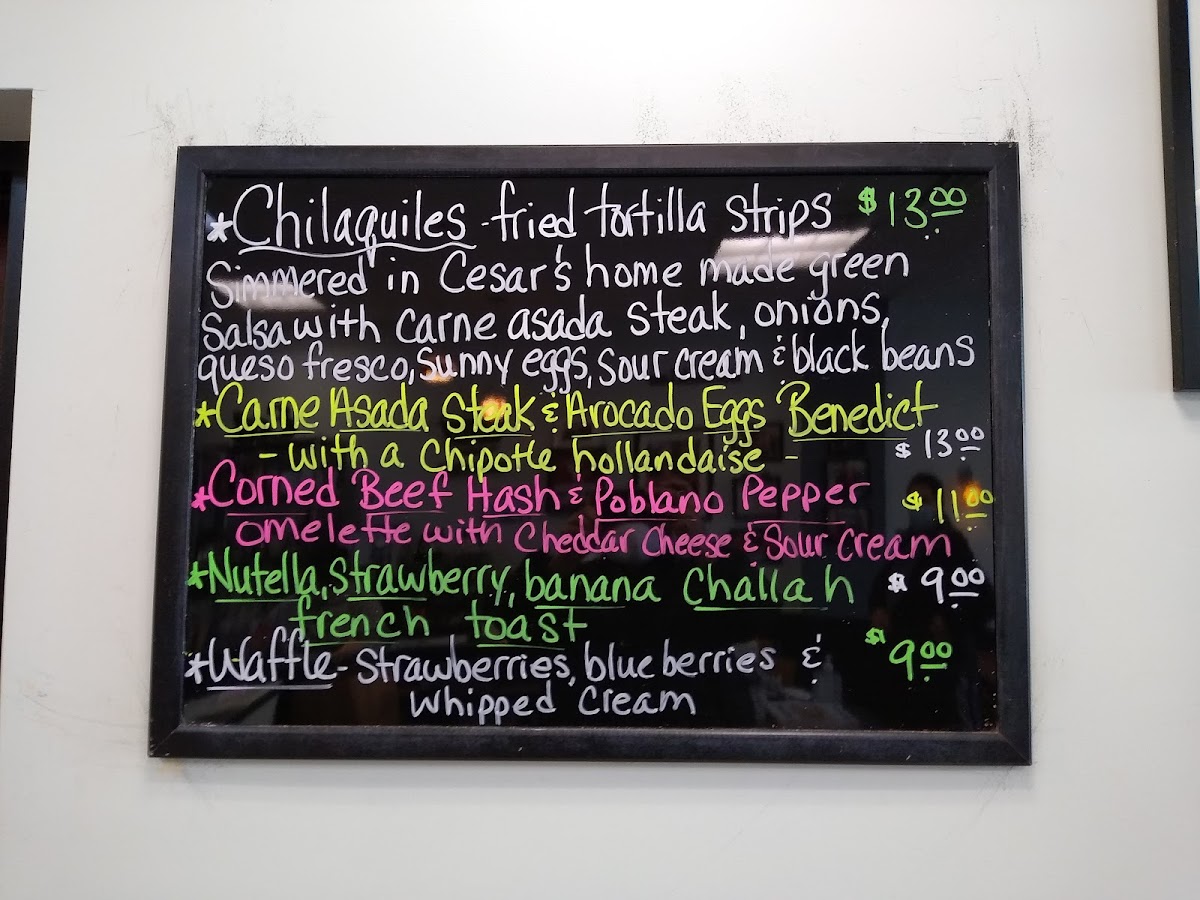 *Chilaquiles - fried tortilla strips $13.00
Simmered in Cesar's home made green
Salsa with carne asada steak, onions,
queso fresco, sunny eggs, sour cream & black beans
*Carne Asada Steak & Avocado Eggs Benedict
- with a Chipotle hollandaise - $13.00
*Corned Beef Hash & Poblano Pepper $11.00
omelette with Cheddar Cheese & Sour Cream
*Nutella, Strawberry, banana Challah $9.00
french toast
*Waffle - Strawberries, blueberries & $9.00
Whipped Cream